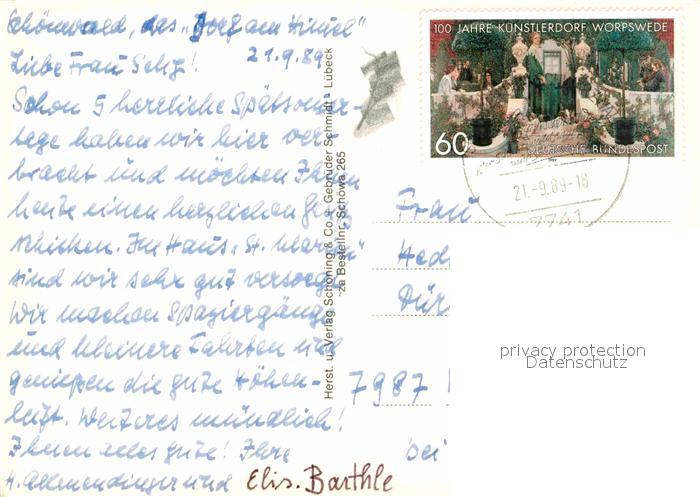 Schönwald, das „Dorf am Himmel"
21.9.89
Liebe Frau
Schon 5 herrliche Spätsommer-
tage haben wir hier ver-
bracht und möchten Ihnen
heute einen herzlichen Gruß
schicken. Im Haus „St. Martin"
sind wir sehr gut versorgt.
Wir machen Spaziergänge
und kleinere Fahrten und
genießen die gute Höhen-
luft. Weiteres mündlich!
Ihnen alles Gute! Ihre
H. Allmendinger und Elis. Barthle
Herst. u. Verlag Schöning & Co. + Gebrüder Schmidt · Lübeck
za Bestellnr. Schöwa 265
100 JAHRE KÜNSTLERDORF WORPSWEDE
60
DEUTSCHE BUNDESPOST
21.-9.89-18
7741
Frau
Hed
Dür
7987
bei
privacy protection
Datenschutz